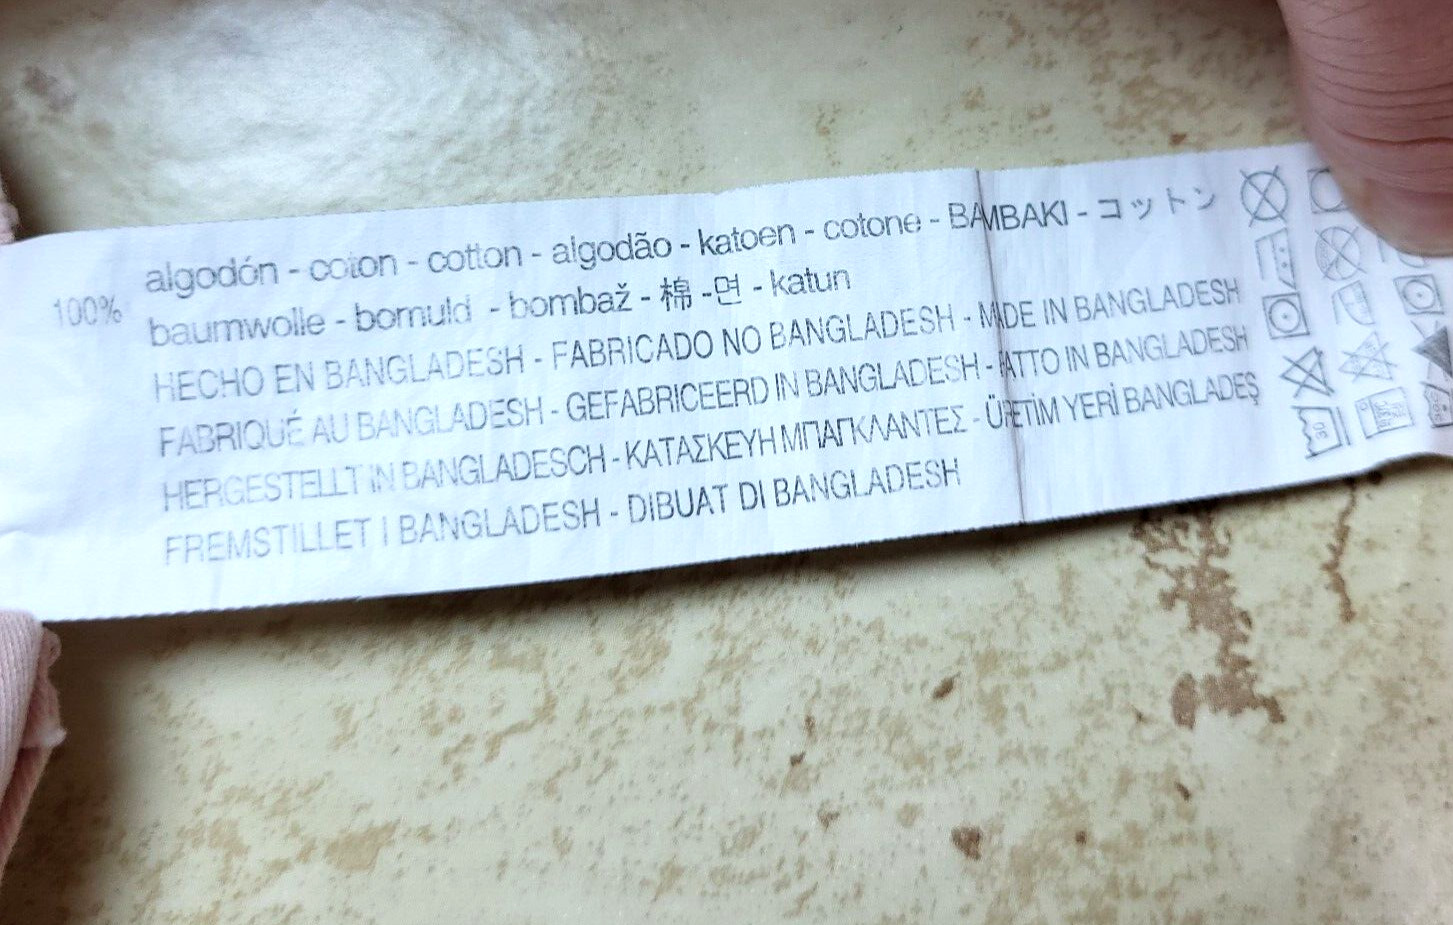 100% algodón - coton - cotton - algodão - katoen - cotone - BAMBAKI - コットン
baumwolle - bomuld - bombaž - 棉 -면 - katun
HECHO EN BANGLADESH - FABRICADO NO BANGLADESH - MADE IN BANGLADESH
FABRIQUÉ AU BANGLADESH - GEFABRICEERD IN BANGLADESH - FATTO IN BANGLADESH
HERGESTELLT IN BANGLADESCH - ΚΑΤΑΣΚΕΥΗ ΜΠΑΓΚΛΑΝΤΕΣ - ÜRETİM YERİ BANGLADEŞ
FREMSTILLET I BANGLADESH - DIBUAT DI BANGLADESH
30